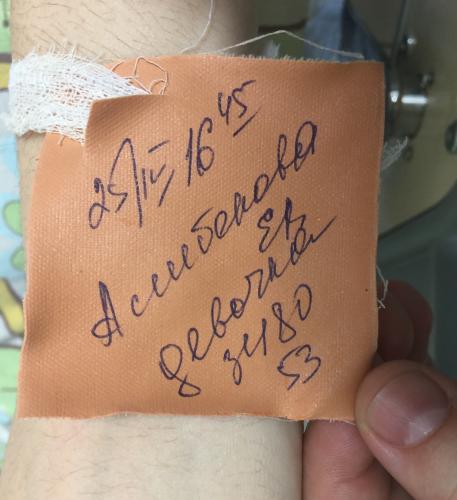 25/IV 16 45
Алибекова
Ек
девочка
3480
53